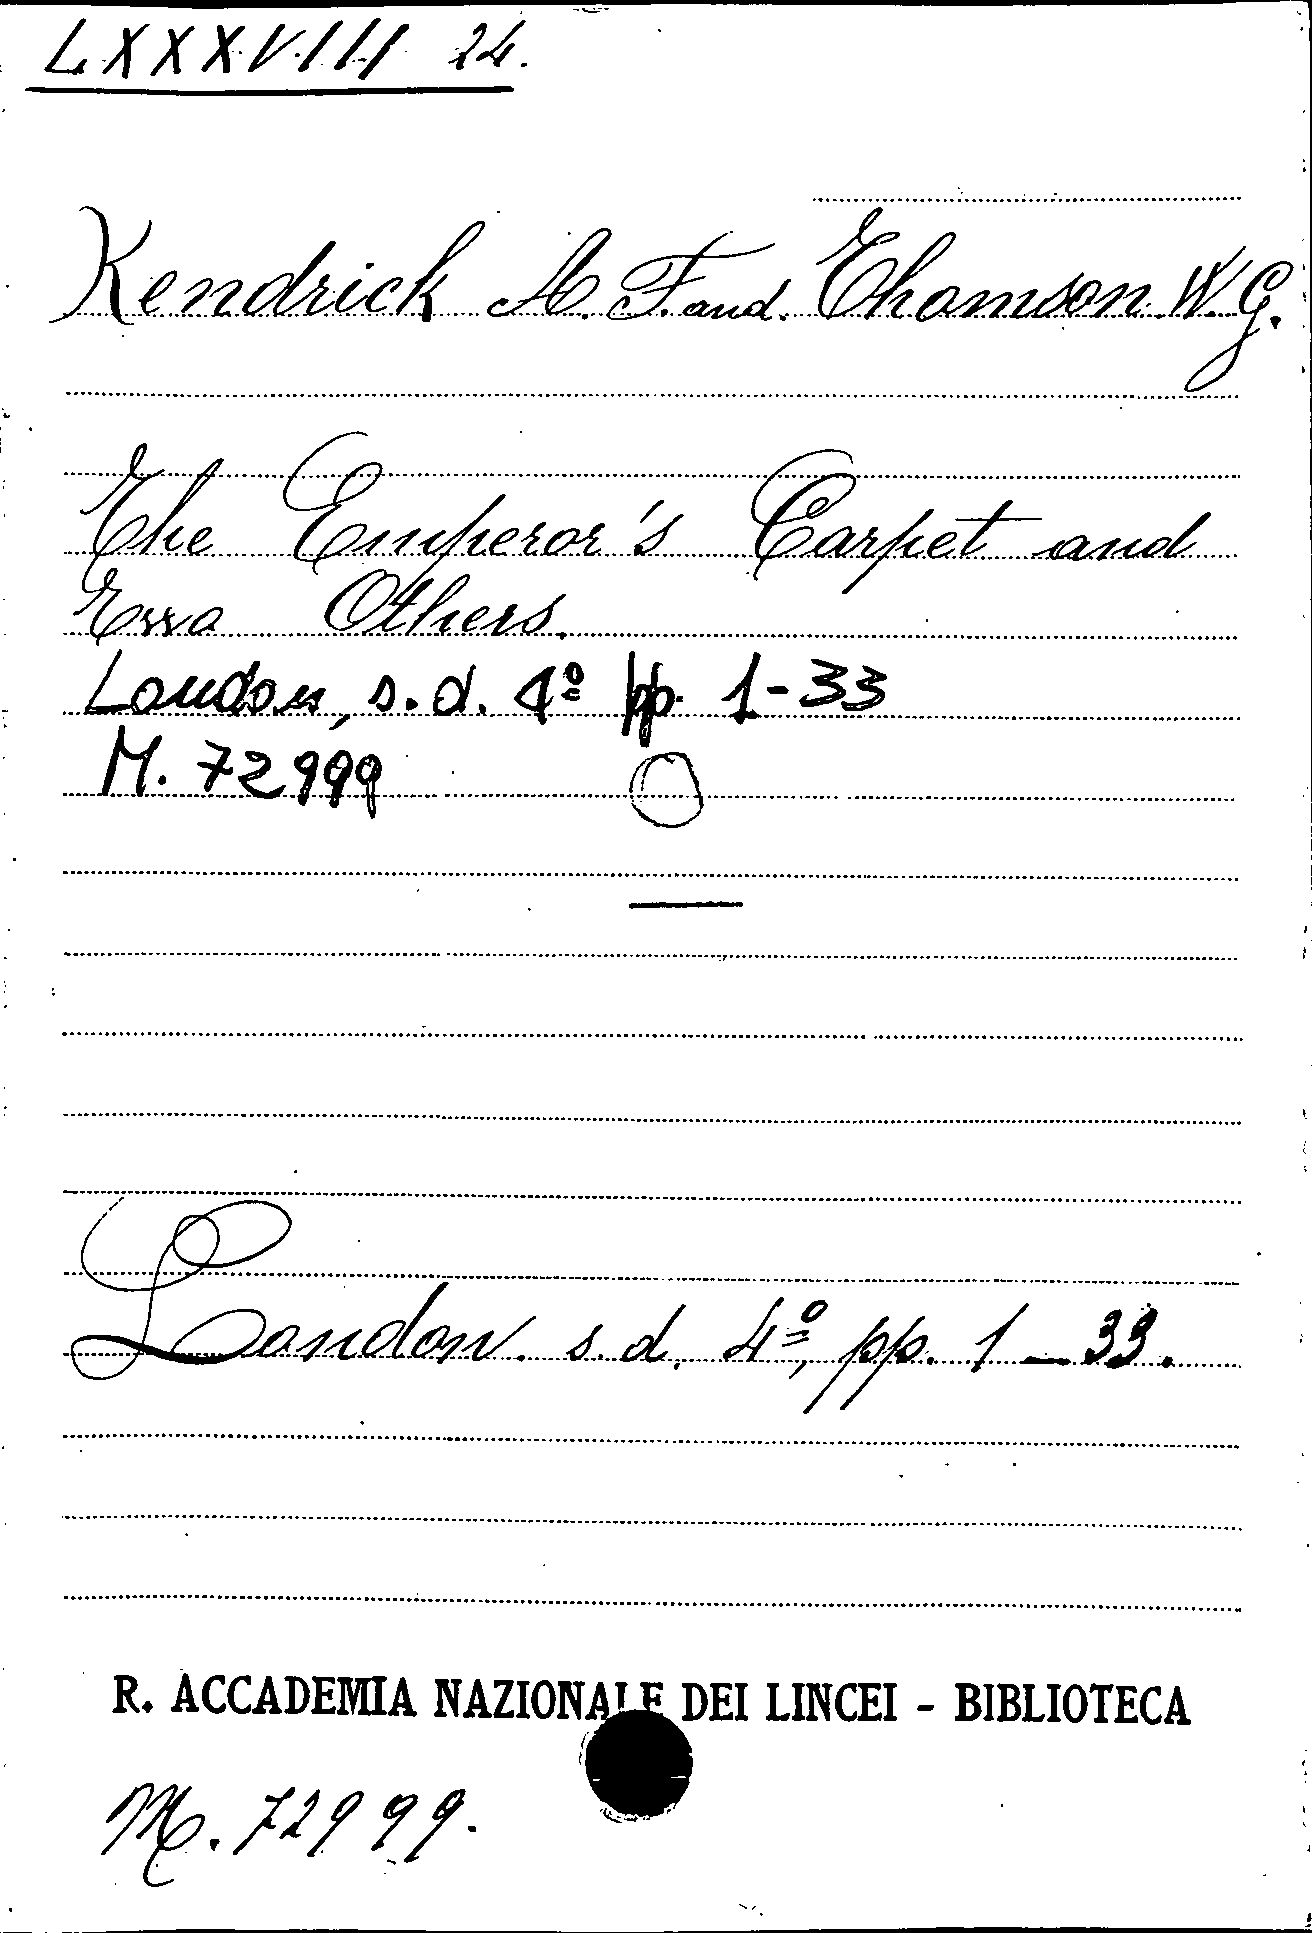 LXXXVIII 24.
Kendrick A. F. and. Thomson W. G.
The Emperor's Carpet and
Two Others.
London, s. d. 4º pp. 1-33
M. 72999
London. s. d. 4º, pp. 1 - 33.
R. ACCADEMIA NAZIONALE DEI LINCEI - BIBLIOTECA
M. 72999.